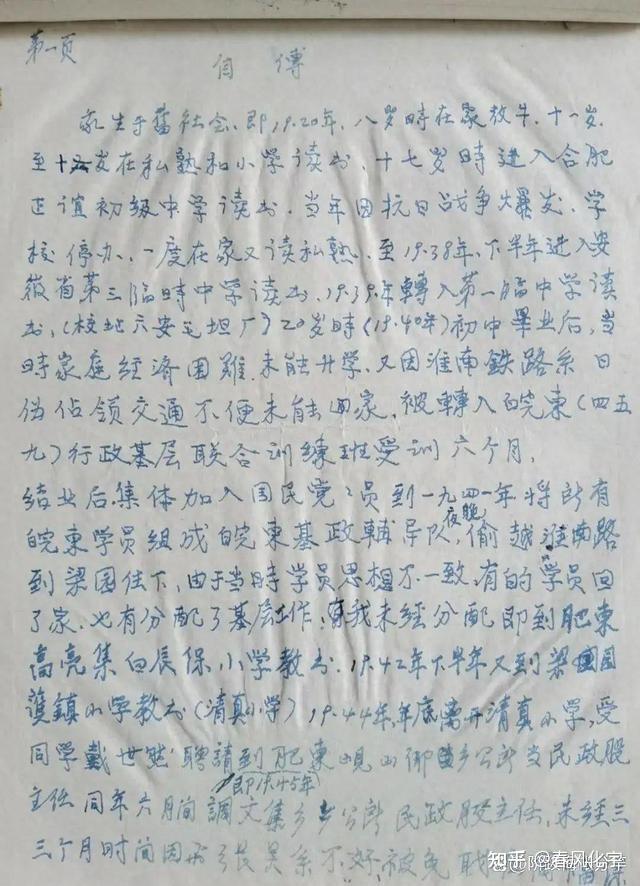 第一页
自 傅
家生于舊社会、即19.20年、八岁時在家放牛、十一岁、
至十六岁在私熟和小学读书、十七岁時進入合肥
正谊初级中学读书、当年因抗日战争爆发、学
校停办、一度在家又读私熟、至19.38年、下半年進入安
徽省第三临時中学读书、19.39.年轉入第一临中学读
书、(校址六安毛坦厂)20岁時(19.40年)初中畢业后,当
時家庭经济困難.未能升学、又因淮南铁路系日
伪佔领交通不便未能回家,被轉入皖東(四五
九)行政基层联合训练班受训六个月,
结业后集体加入国民党党员到一九四一年将所有
皖東学员组成皖東基政輔导队,夜晚偷越淮南路
到梁园住下,由于当時学员思想不一致,有的学员回
了家、也有分配了基层工作,我未经分配即到肥東
高亮集白辰保小学教书、19.42年下半年又到梁園
護镇小学教书(清真小学)19.44年,年底离开清真小学,受
同学戴世然聘請到肥東岘山乡公所当民政股
主任同年六月间(即19.45年)調文集乡公所民政股主任,未经三
三个月时间因 关系不好被免职
知乎 @春风化宇